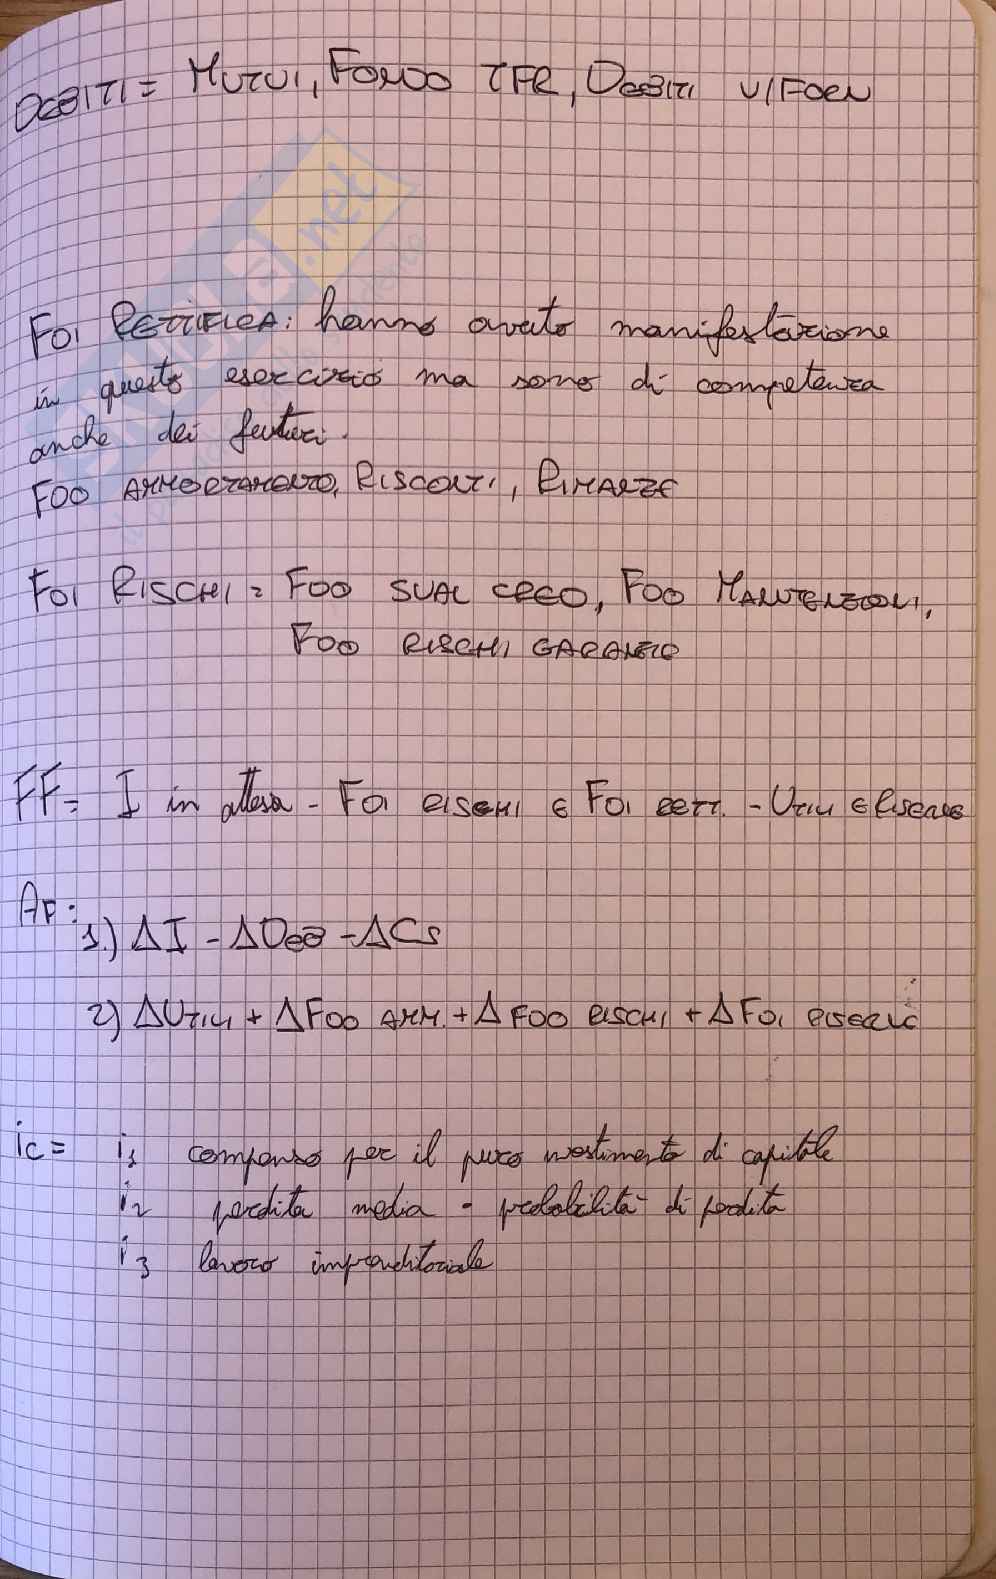 DEBITI = MUTUI, FONDO TFR, DEBITI V/FORN
FDI RETTIFICA: hanno avuto manifestazione
in questo esercizio ma sono di competenza
anche dei futuri.
FDO AMMORTAMENTO, RISCONTI, RIMANZE
FDI RISCHI = FDO SVAL CRED, FDO MANUTENZIONI,
FDO RISCHI GARANZIE
FF = I in attesa - FDI RISCHI E FDI RETT. - UTILI E RISERVE
AF:
1.) ΔI - ΔDEB - ΔCS
2) ΔUTILI + ΔFDO AMM. + ΔFDO RISCHI + ΔFDI RISERVE
ic = i1 compenso per il puro investimento di capitale
i2 perdita media - probabilità di perdita
i3 lavoro imprenditoriale
.net